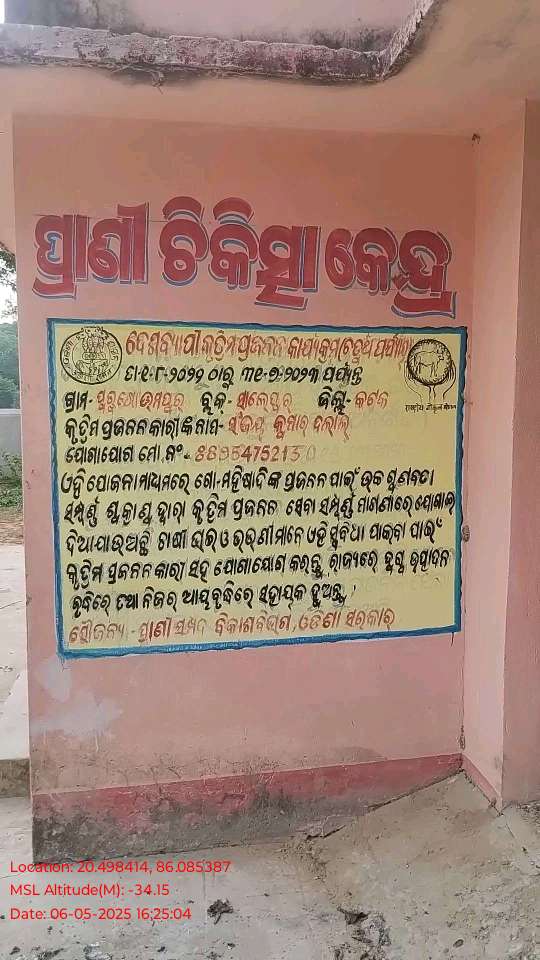 ପ୍ରାଣୀ ଚିକିତ୍ସା କେନ୍ଦ୍ର
ଦେଶବ୍ୟାପୀ କୃତ୍ରିମ ପ୍ରଜନନ କାର୍ଯ୍ୟକ୍ରମ (ଚତୁର୍ଥ ପର୍ଯ୍ୟାୟ)
ତା ୧-୮-୨୦୨୨ ଠାରୁ ୩୧-୭-୨୦୨୩ ପର୍ଯ୍ୟନ୍ତ
ଗ୍ରାମ- ବ୍ଲକ- ସାଲେପୁର ଜିଲ୍ଲା- କଟକ
କୃତ୍ରିମ ପ୍ରଜନନକାରୀଙ୍କ ନାମ- ସଂଜୟ କୁମାର ଦଲାଲ୍
ଯୋଗାଯୋଗ ମୋ. ନଂ-
ଏହି ଯୋଜନା ମାଧ୍ୟମରେ ଗୋ-ମହିଷାଦିଙ୍କ ପ୍ରଜନନ ପାଇଁ ଉଚ୍ଚ ଗୁଣବତ୍ତା
ସମ୍ପୂର୍ଣ୍ଣ ଶୁକ୍ରାଣୁ ଦ୍ୱାରା କୃତ୍ରିମ ପ୍ରଜନନ ସେବା ସମ୍ପୂର୍ଣ୍ଣ ମାଗଣାରେ ଯୋଗାଇ
ଦିଆଯାଉଅଛି ଚାଷୀ ଭାଇ ଓ ଭଉଣୀମାନେ ଏହି ସୁବିଧା ପାଇବା ପାଇଁ
କୃତ୍ରିମ ପ୍ରଜନନକାରୀ ସହ ଯୋଗାଯୋଗ କରନ୍ତୁ ରାଜ୍ୟରେ ଦୁଗ୍ଧ ଉତ୍ପାଦନ
ବୃଦ୍ଧିରେ ତଥା ନିଜର ଆୟବୃଦ୍ଧିରେ ସହାୟକ ହୁଅନ୍ତୁ ।
ସୌଜନ୍ୟ- ପ୍ରାଣୀ ସମ୍ପଦ ବିକାଶ ବିଭାଗ, ଓଡିଶା ସରକାର
Location: 20.498414, 86.085387
MSL Altitude(M): -34.15
Date: 06-05-2025 16:25:04